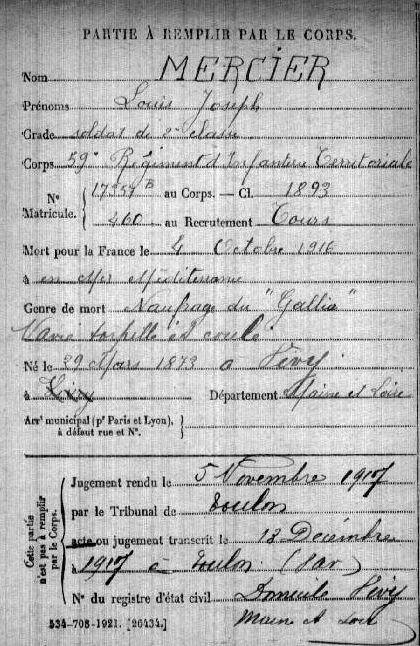 PARTIE À REMPLIR PAR LE CORPS.
Nom MERCIER
Prénoms Louis Joseph
Grade soldat de 2e classe
Corps 59e Régiment d'Infanterie Territoriale
N° Matricule. { 17359 B au Corps. — Cl. 1893
460 au Recrutement Tours
Mort pour la France le 4 Octobre 1916
à en Mer Méditerranée
Genre de mort Naufrage du "Gallia"
Navire torpillé et coulé
Né le 29 Mars 1873 à
à Département Maine et Loire
Arrt municipal (pr Paris et Lyon),
à défaut rue et N°.
Cette partie n'est pas à remplir par le Corps.
Jugement rendu le 5 Novembre 1917
par le Tribunal de Toulon
acte ou jugement transcrit le 13 Décembre
à 1917 à Toulon (Var)
N° du registre d'état civil Domicile
Maine et Loire
534-708-1921. [26434.]